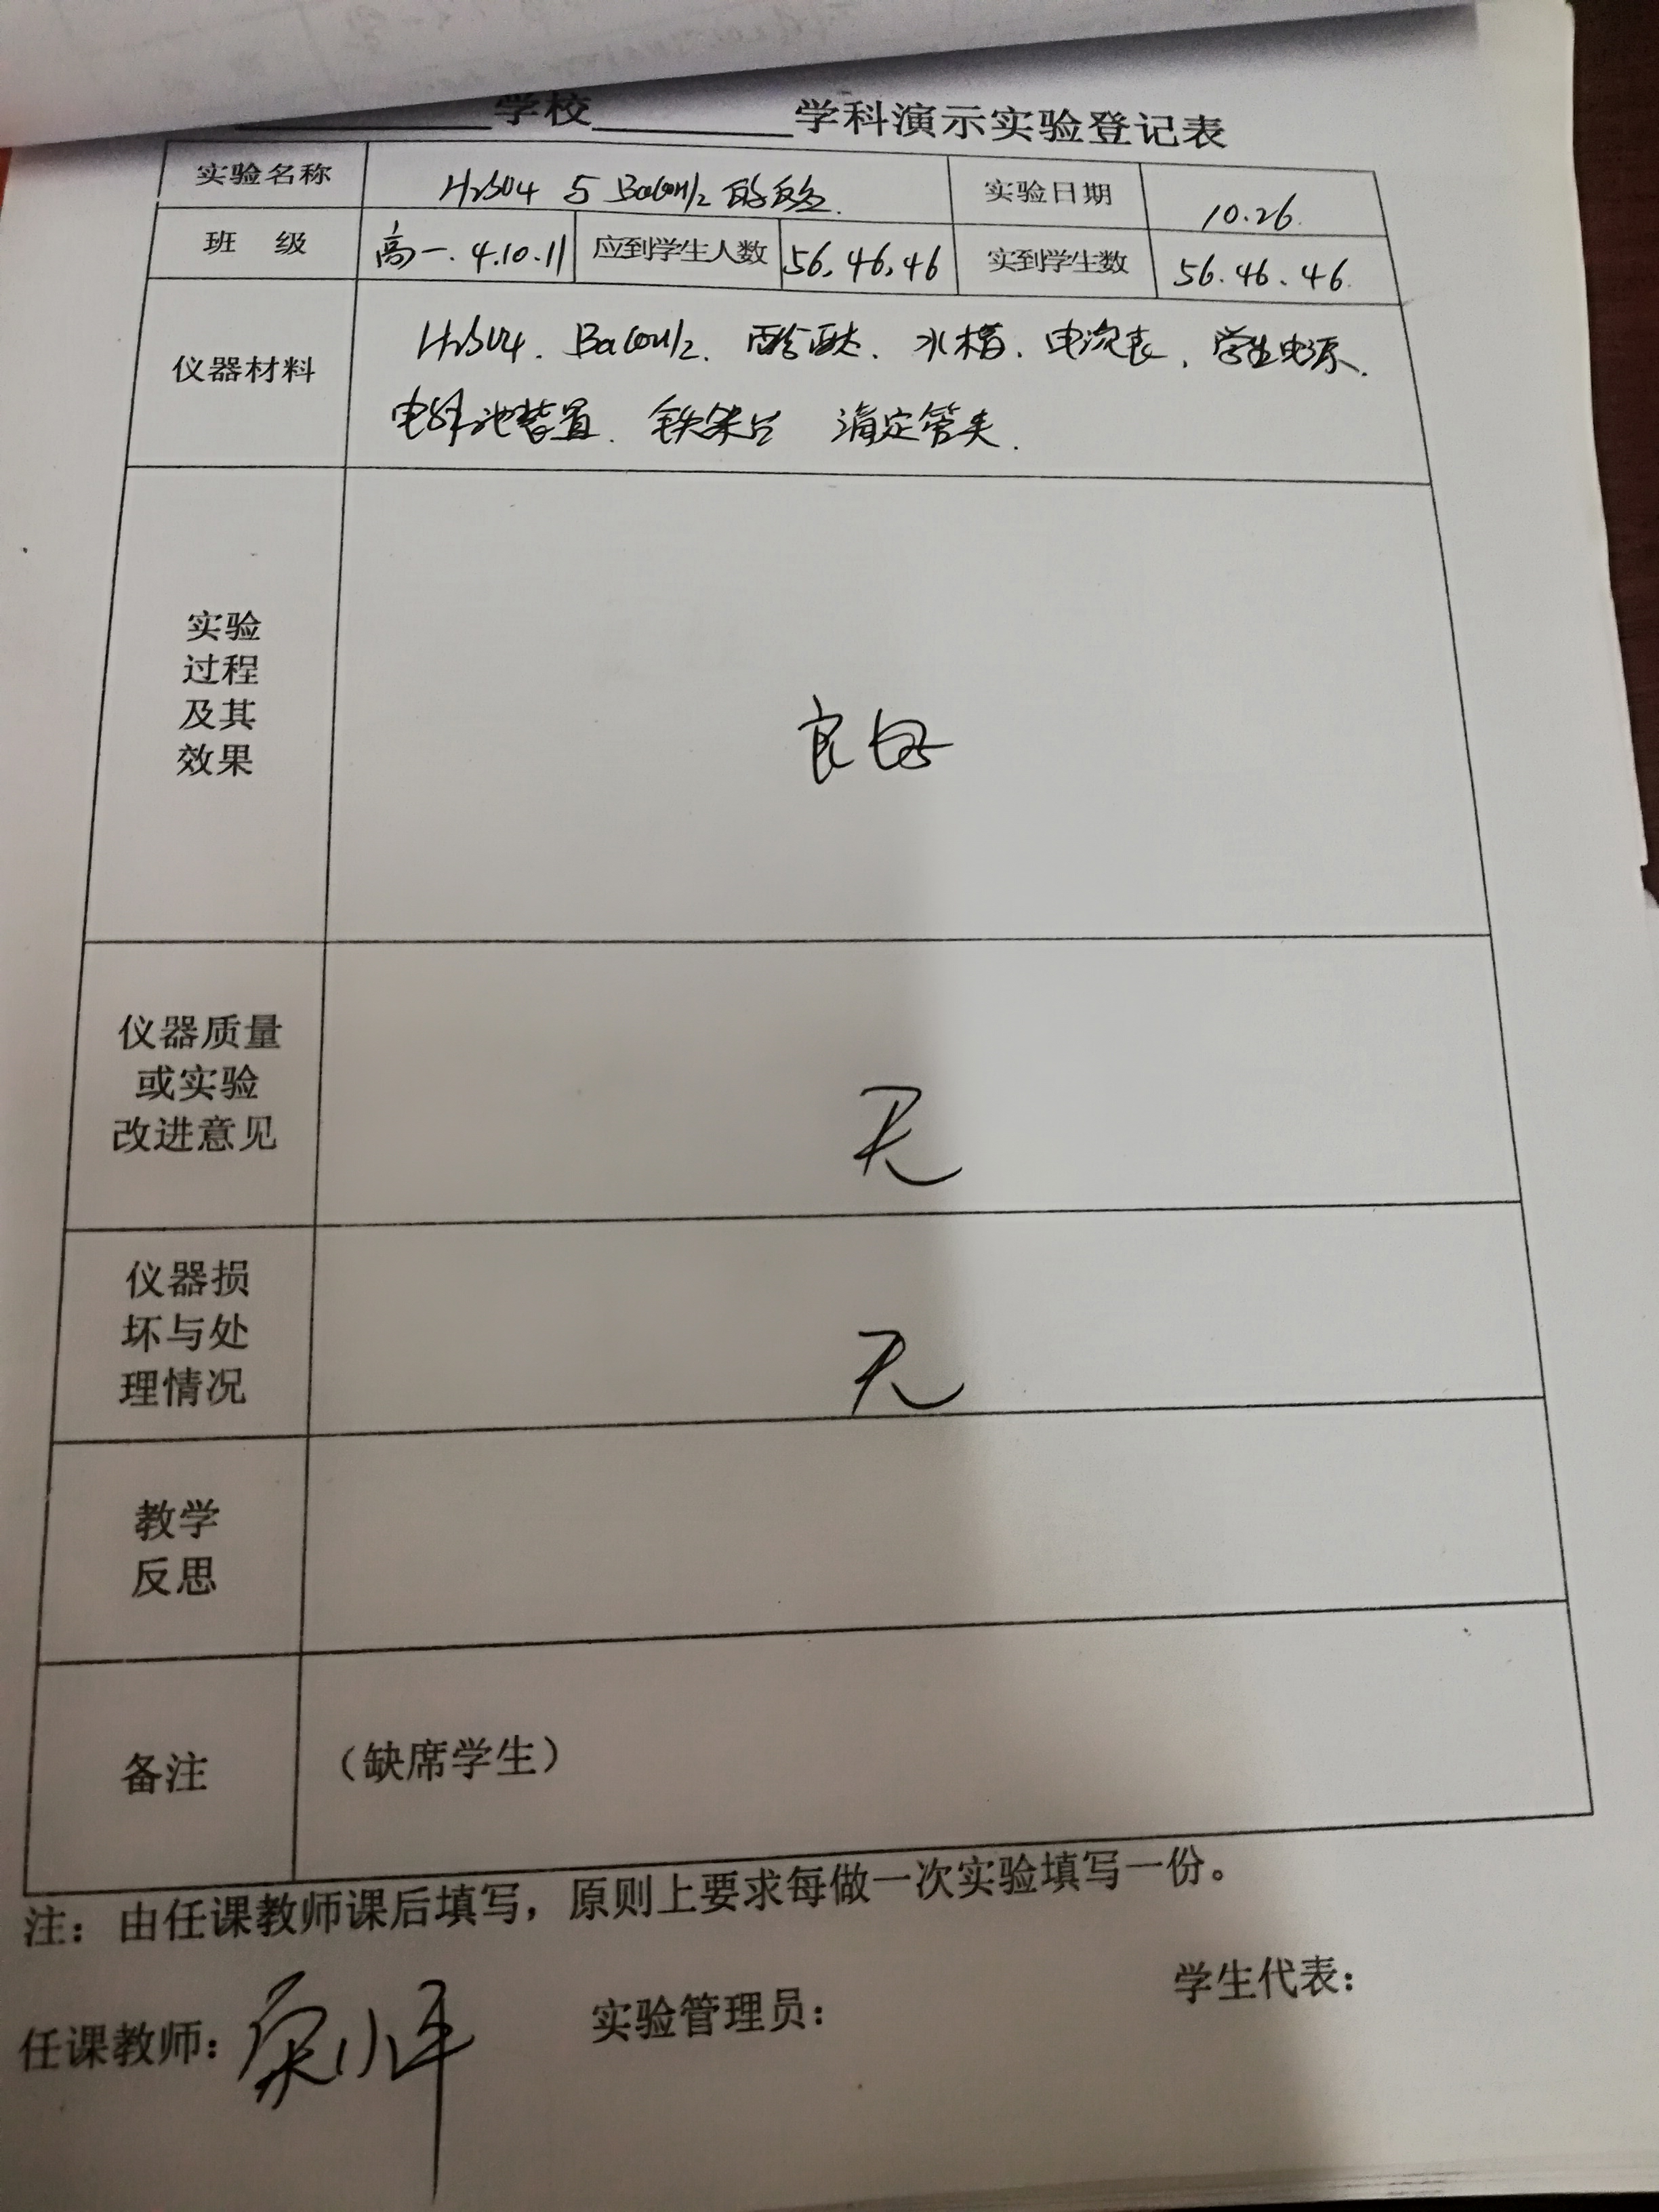 学校 学科演示实验登记表
实验名称 H₂SO4 与 Ba(OH)2 的反应. 实验日期 10.26.
班 级 高一.4.10.11 应到学生人数 56,46,46 实到学生数 56.46.46.
仪器材料 H₂SO4. Ba(OH)2. 酚酞. 水槽. 电流表. 学生电源.
电解池装置. 铁架台 滴定管夹.
实验
过程
及其
效果
良好
仪器质量
或实验
改进意见
无
仪器损
坏与处
理情况
无
教学
反思
备注 (缺席学生)
注: 由任课教师课后填写, 原则上要求每做一次实验填写一份。
任课教师: 小平 实验管理员: 学生代表: